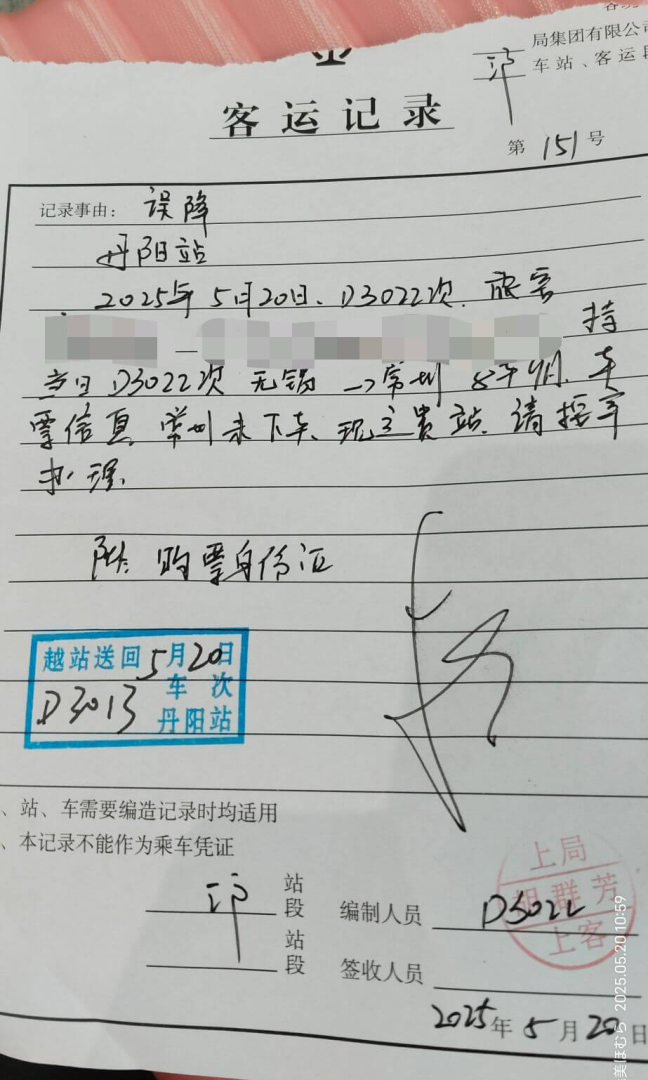 局集团有限公司
沪 车站、客运段
客运记录
第 151 号
记录事由: 误降
丹阳站
2025年5月20日、D3022次、旅客
持
当日D3022次 无锡→常州 8车4月、车
票信息 常州未下车、现交贵站、请按章
办理、
附: 购票身份证
越站送回5月20日
D3013 车次
丹阳站
、站、车需要编造记录时均适用
、本记录不能作为乘车凭证
沪 站
段 编制人员 D3022
站
段 签收人员
上局
群芳
上客
2025年5月20日
美ほむら 2025.05.20 10:59